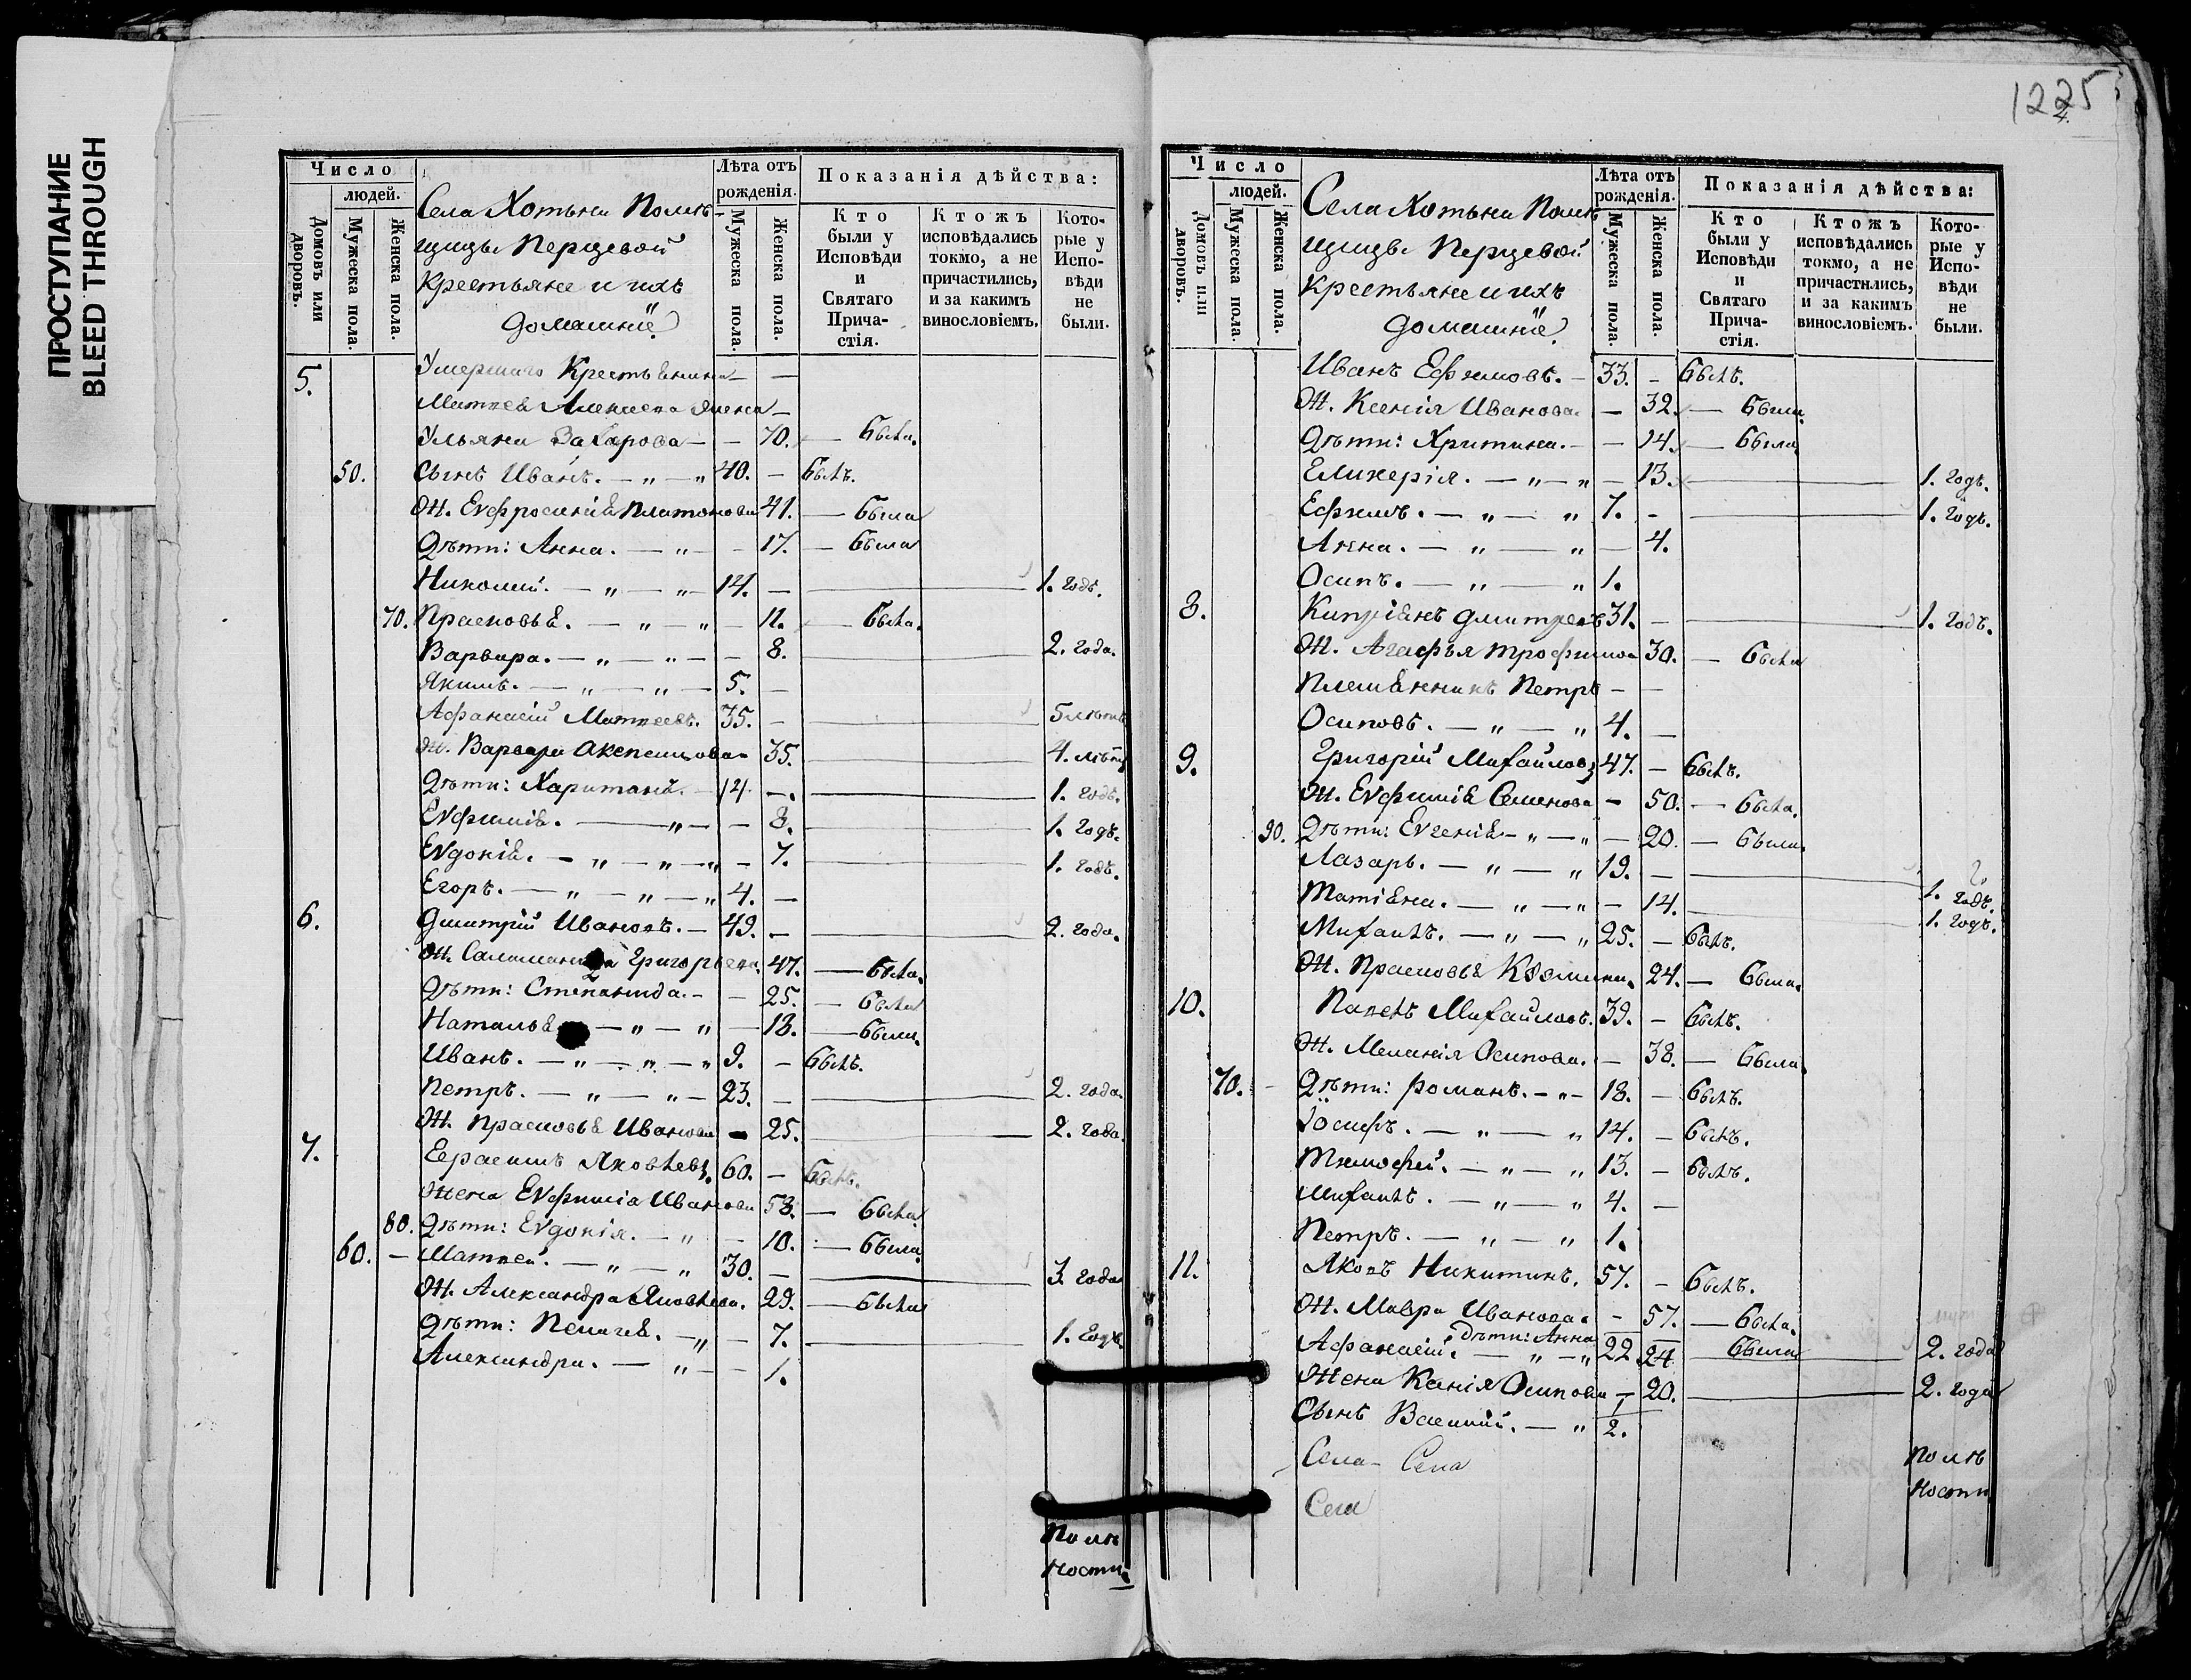 ПРОСТУПАНИЕ
BLEED THROUGH
1225
4.
Число
людей.
Домовъ или дворовъ.
Мужеска пола.
Женска пола.
Села Хотьни Помѣ-
щицы Перцевой
Крестьяне и ихъ
домашніе
Лѣта отъ рожденія.
Мужеска пола.
Женска пола.
Показанія дѣйства:
Кто были у Исповѣди и Святаго Прича-стія.
Ктожъ исповѣдались токмо, а не причастились, и за какимъ винословіемъ.
Кото-рые у Испо-вѣди не были.
5. Умершаго Крестьянина — —
Матвея Алексеева жена —
Ульяна Захарова — — 70. — была.
50. Сынъ Иванъ. — „ — „ 40. — былъ.
Ж. Евфросинія Платонова 41. — была
Дѣти: Анна. — „ — — 17. — была
Николай. — „ — „ — 14. — — 1. годъ.
70. Прасковья. — „ — „ — 11. — была.
Варвара. — „ — „ — — 8. — 2. года.
Якимъ. — „ — „ — 5. —
Афанасій Матвеевъ. 35. — — 5 лѣтъ
Ж. Варвара 35. — 4. лѣты
Дѣти: Харитонъ. — 14. — — 1. годъ.
Евфимія. — „ — — 8. — 1. годъ.
Евдокія. — „ — „ — „ — 7. — 1. годъ.
Егоръ. — „ — „ — „ 4. —
6. Дмитрій Ивановъ. — 49. — — 2. года.
Ж. Григорьева. 47. — была.
Дѣти: Степанида. — — 25. — была
Наталья — „ — „ — 18. — была.
Иванъ. — „ — „ — „ 9. — былъ.
Петръ. — „ — „ — 23. — — 2. года.
Ж. Прасковья Иванова — 25. — 2. года.
7. Герасимъ Яковлевъ. 60. — былъ.
Жена Евфимія Иванова 58. — была
80. Дѣти: Евдокія. — „ — 10. — была
60. — Матвей. — „ — „ 30. — — 3. года
Ж. Александра Яковлева. 29. — была
Дѣти: Пелагея. — „ — 7. — 1. годъ.
Александра. — „ — — 1.
Полѣ
ности.
Число
людей.
Домовъ или дворовъ.
Мужеска пола.
Женска пола.
Села Хотьни Помѣ
щицы Перцевой
Крестьяне и ихъ
домашніе
Лѣта отъ рожденія.
Мужеска пола.
Женска пола.
Показанія дѣйства:
Кто были у Исповѣди и Святаго Прича-стія.
Ктожъ исповѣдались токмо, а не причастились, и за какимъ винословіемъ.
Кото-рые у Испо-вѣди не были.
Иванъ Ефимовъ. — 33. — былъ.
Ж. Ксенія Иванова. — 32. — была
Дѣти: Хритина. — — 14. — была
Гликерія. — „ — „ — 13. — 1. годъ.
Ефимъ. — „ — „ 7. — — 1. годъ.
Анна. — „ — „ — 4.
Осипъ. — „ — „ 1.
8. Кипріянъ Дмитревъ 31. — — 1. годъ.
Ж. Агафья Трофимова 30. — была
Племянникъ Петръ — —
Осиповъ. — „ — „ 4. —
9. Григорій Михайловъ 47. — былъ.
Ж. Евфимія Семенова — 50. — была.
90. Дѣти: Евгенія — „ — „ — 20. — была.
Лазарь. — „ — „ 19. — — 1. годъ.
Татіяна. — „ — „ — 14. — 1. годъ.
Михаилъ. — „ — „ 25. — былъ.
Ж. Прасковья Козмина. 24. — была.
10. Павелъ Михайловъ. 39. — былъ.
Ж. Меланія Осипова. — 38. — была
70. — Дѣти: Романъ. — „ — 18. — былъ.
Іосифъ. — „ — „ 14. — былъ.
Тимофей. — „ — „ 13. — былъ.
Михаилъ. — „ — „ 4. —
Петръ. — „ — „ 1.
11. Яковъ Никитинъ. 57. — былъ.
Ж. Мавра Иванова. — 57. — была.
Дѣти: Анна 24 была
Афанасій. — „ — „ 22 — 2. года
Жена Ксанія Осипова — 20. — 2. года
Сынъ Василий. — „ 2.
Села Села
Села
Полѣ
ности